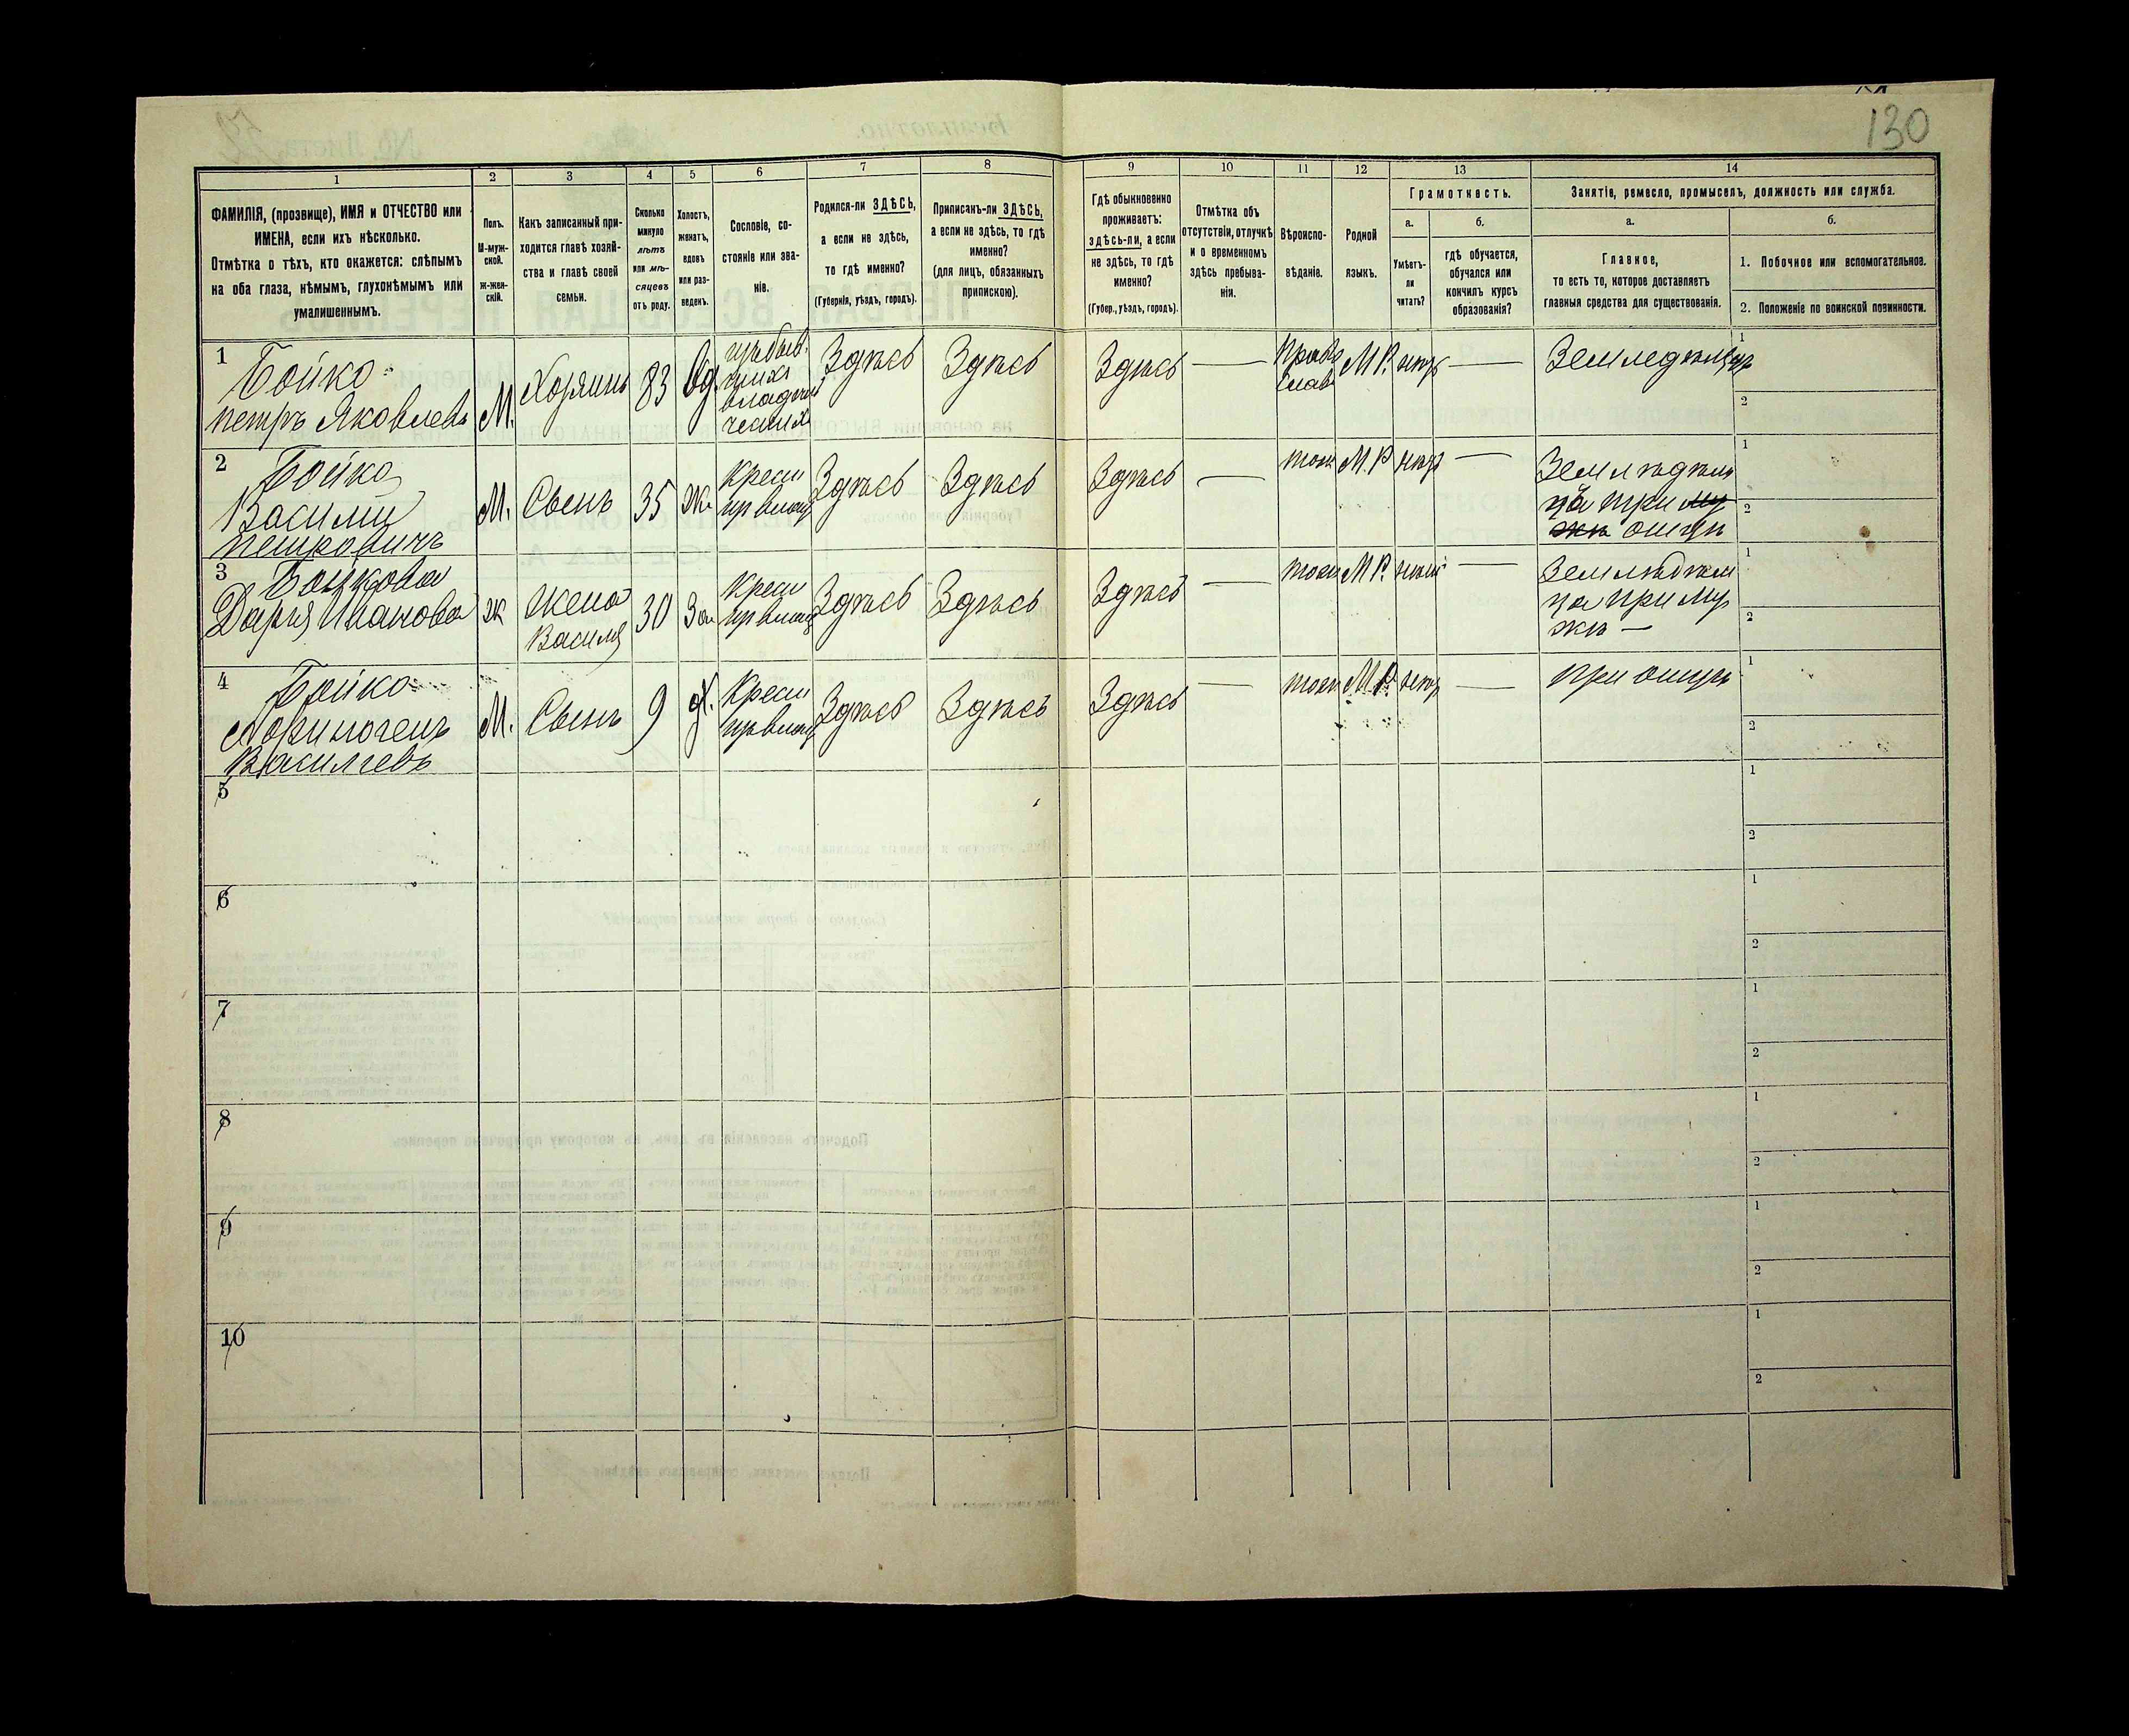 130
1 2 3 4 5 6 7 8 9 10 11 12 13 14
ФАМИЛІЯ, (прозвище), ИМЯ и ОТЧЕСТВО или
ИМЕНА, если ихъ нѣсколько.
Отмѣтка о тѣхъ, кто окажется: слѣпымъ
на оба глаза, нѣмымъ, глухонѣмымъ или
умалишеннымъ.
Полъ.
М-муж-
ской.
ж-жен-
скій.
Какъ записанный при-
ходится главѣ хозяй-
ства и главѣ своей
семьи.
Сколько
минуло
лѣтъ
или мѣ-
сяцевъ
отъ роду.
Холостъ,
женатъ,
вдовъ
или раз-
веденъ.
Сословіе, со-
стояніе или зва-
ніе.
Родился-ли ЗДѢСЬ,
а если не здѣсь,
то гдѣ именно?
(Губернія, уѣздъ, городъ).
Приписанъ-ли ЗДѢСЬ,
а если не здѣсь, то гдѣ
именно?
(для лицъ, обязанныхъ
припискою).
Гдѣ обыкновенно
проживаетъ:
здѣсь-ли, а если
не здѣсь, то гдѣ
именно?
(Губер., уѣздъ, городъ).
Отмѣтка объ
отсутствіи, отлучкѣ
и о временномъ
здѣсь пребыва-
ніи.
Вѣроиспо-
вѣданіе.
Родной
языкъ.
Грамотность.
а.
Умѣетъ-
ли
читать?
б.
гдѣ обучается,
обучался или
кончилъ курсъ
образованія?
Занятіе, ремесло, промыселъ, должность или служба.
а.
Главное,
то есть то, которое доставляетъ
главныя средства для существованія.
б.
1. Побочное или вспомогательное.
2. Положеніе по воинской повинности.
1
Бойко
петръ Яковлевъ
М.
Хозяинъ
83
Вд
Здѣсь
Здѣсь
Здѣсь
—
Право
слав
М Р.
—
Земледѣлецъ
1
2
2
Бойко
Василий
петровичъ
М.
Сынъ
35
Же
Крест
Здѣсь
Здѣсь
Здѣсь
—
М. Р
—
Земледѣле
ца при
отцѣ
1
2
3
Бойкова
Дарья Иванова
ж
жена
Василя
30
За
Крест
Здѣсь
Здѣсь
Здѣсь
—
М Р.
—
Земледѣле
ца при му
жѣ —
1
2
4
Бойко
Василіевъ
М.
Сынъ
9
Х.
Крест
Здѣсь
Здѣсь
Здѣсь
—
М. Р.
—
при отцѣ
1
2
5
1
2
6
1
2
7
1
2
8
1
2
9
1
2
10
1
2